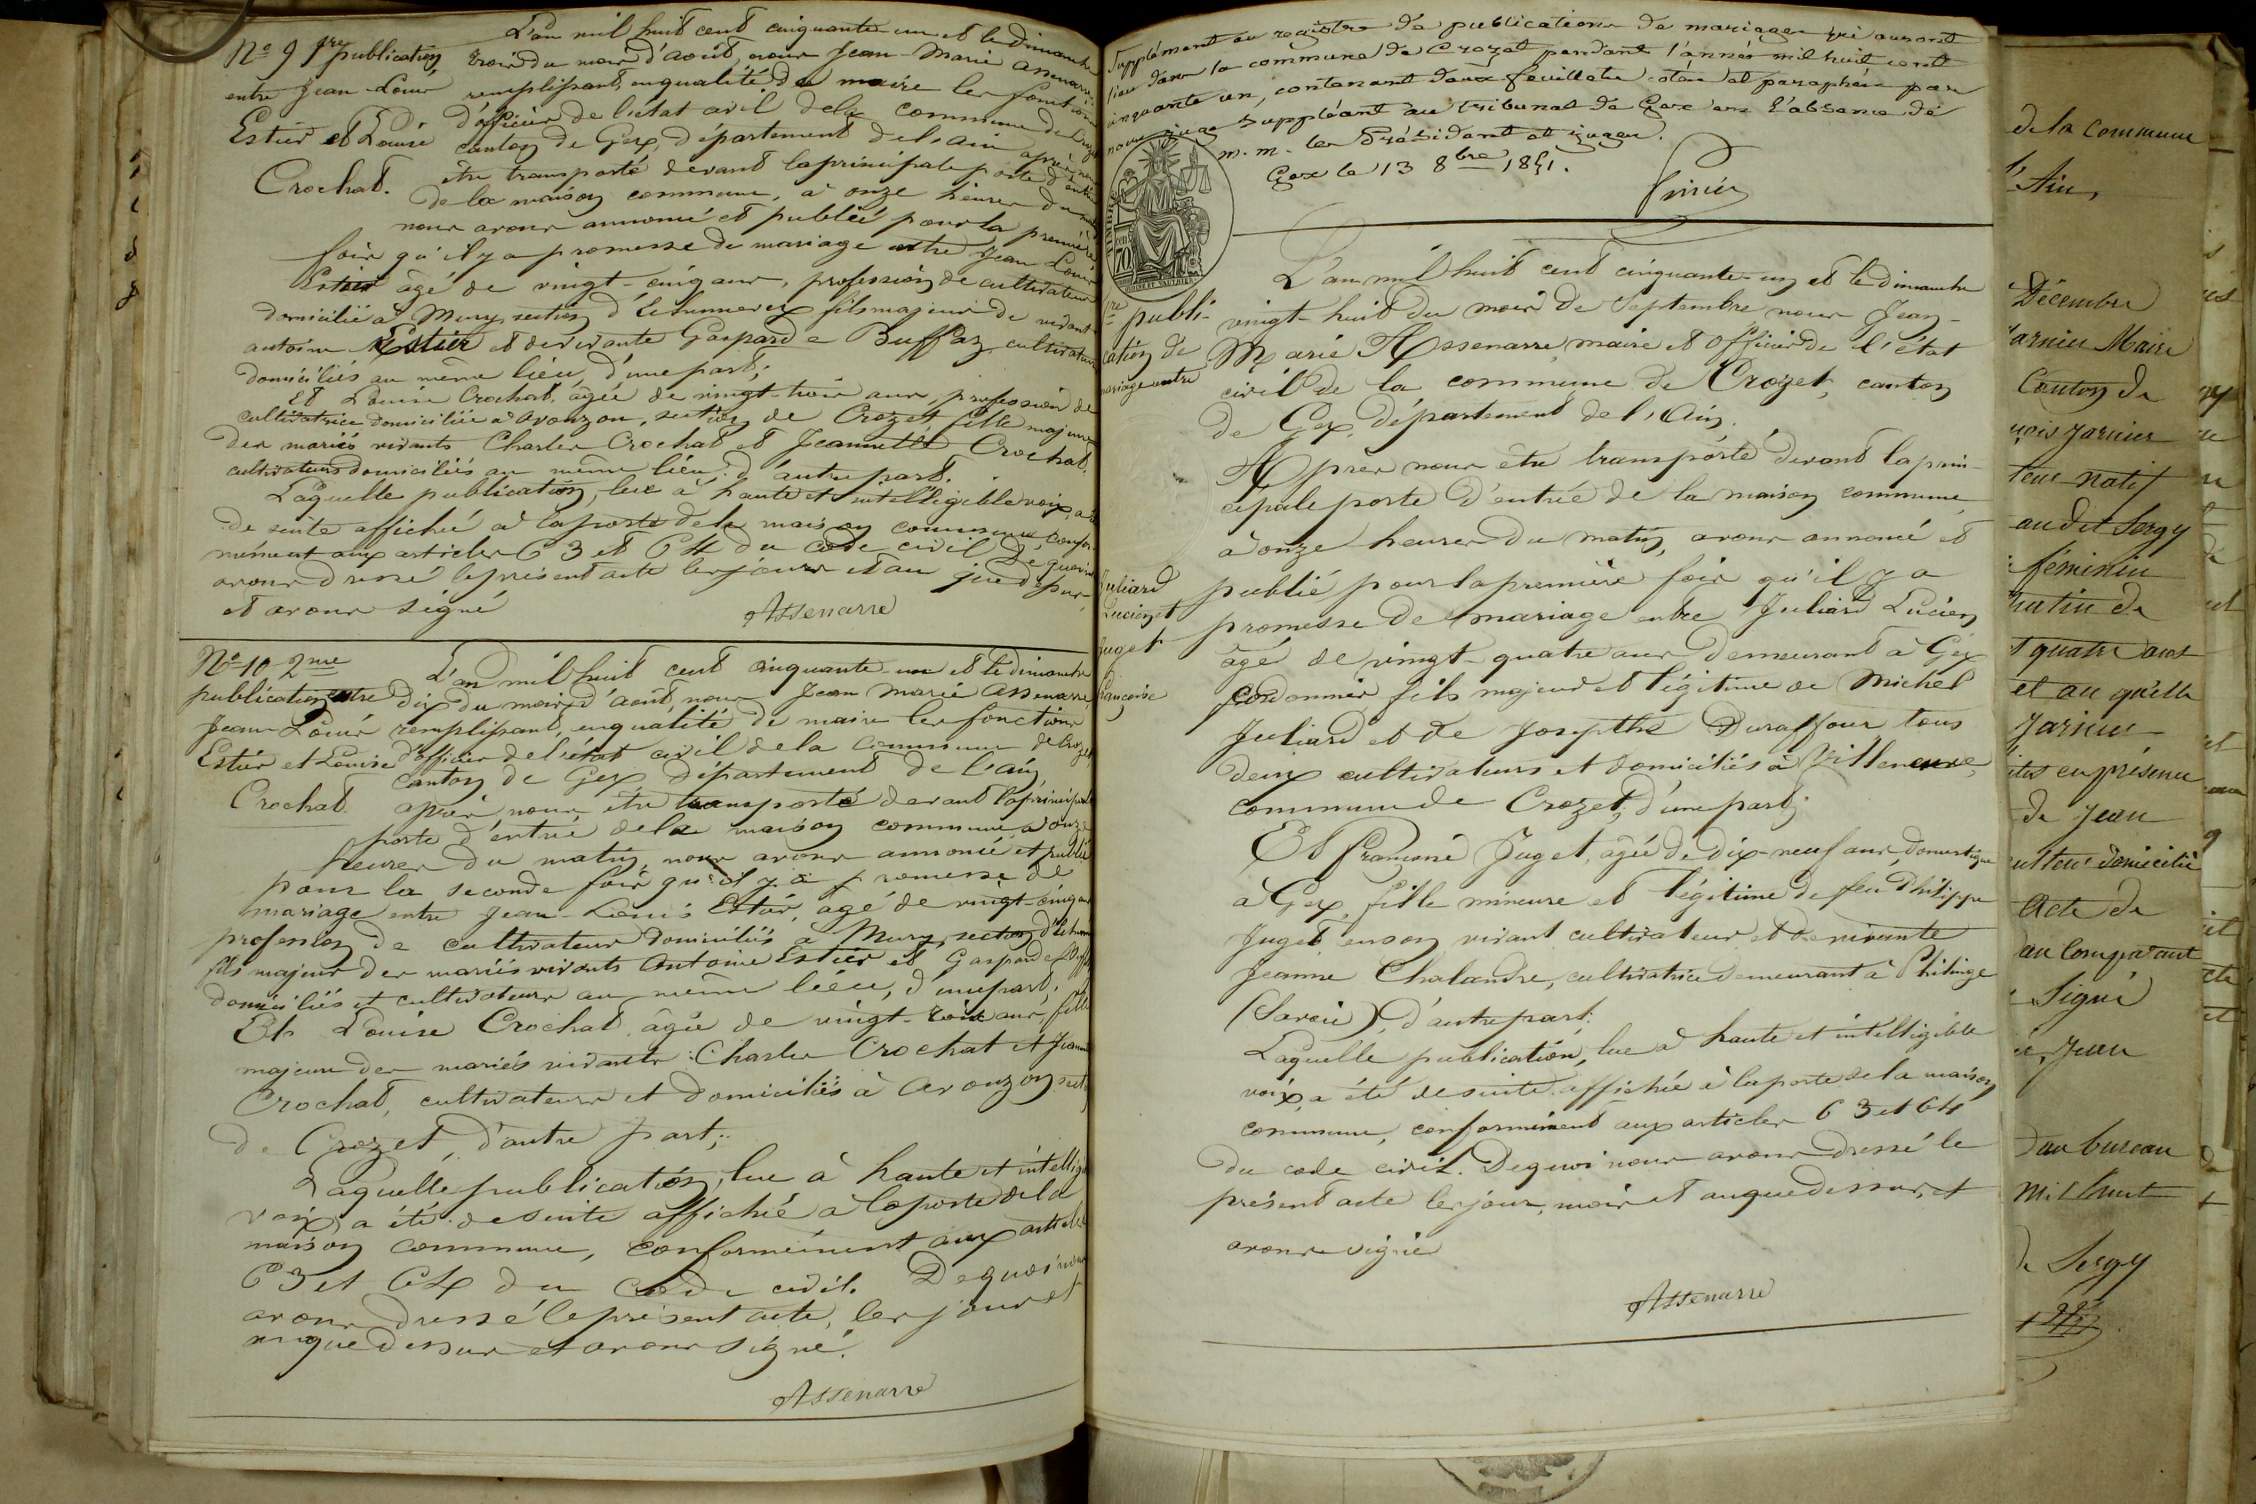 No 9 1re publication
entre Jean Louis
Estier et Louise
Crochat.
L'an mil huit cent cinquante un et le dimanche
trois du mois d'août, nous Jean-Marie Assenarre
remplissant, en qualité de maire les fonctions
d'officier de l'état civil de la commune de Crozet
canton de Gex, département de l'ain après nous
être transporté devant la principale porte d'entrée
de la maison commune, à onze heures du matin
nous avons annoncé et publié pour la première
fois qu'il y a promesse de mariage entre Jean Louis
Estier âgé de vingt-cinq ans, profession de cultivateur
domicilié à Mury section d'Echenevex fils majeur de vivant
antoine Estier et de vivante Gasparde Buffaz cultivateurs
domiciliés au même lieu, d'une part;
Et Louise Crochat, âgée de vingt-trois ans, profession de
cultivatrice domiciliée à avouzon, section de Crozet fille majeure
des mariés vivants Charles Crochat et Jeannette Crochat,
cultivateurs domiciliés au même lieu, d'autre part.
Laquelle publication, lue à haute et intelligible voix, a été
de suite affichée à la porte de la maison commune, confor-
mément aux articles 63 et 64 du code civil De quoi nous
avons dressé le présent acte les jour et an que dessus
et avons signé
Assenarre
No 10 2me
publication entre
Jean-Louis
Estier et Louise
Crochat
L'an mil huit cent cinquante-un et le dimanche
dix du mois d'août, nous Jean Marie Assenarre
remplissant, en qualité de maire les fonctions
d'officier de l'état civil de la commune de Crozet
canton de Gex département de l'ain,
après nous être transporté devant la principale
porte d'entrée de la maison commune, à onze
heures du matin, nous avons annoncé et publié
pour la seconde fois qu'il y a promesse de
mariage entre Jean-Louis Estier, âgé de vingt-cinq ans
profession de cultivateur domicilié à Mury, section d'Echenevex
fils majeur des mariés vivants Antoine Estier et Gasparde Buffaz
domiciliés et cultivateurs au même lieu, d'une part;
Et Louise Crochat âgée de vingt-trois ans fille
majeure des mariés vivants: Charles Crochat et Jeannette
Crochat, cultivateurs et domiciliés à avouzon, sect.
de Crozet, d'autre part;
Laquelle publication, lue à haute et intelligible
voix, a été de suite affichée à la porte de la
maison commune, conformément aux articles
63 et 64 du code civil. De quoi nous
avons dressé le présent acte, les jour et
an que dessus et avons signé.
Assenarre
Supplément au registre de publications de mariages qui auront
lieu dans la commune de Crozet pendant l'année mil huit cent
cinquante un, contenant deux feuillets cotés et paraphés par
nous juge suppléant au tribunal de Gex en l'absence de
m. m. les Président et juges.
Gex le 13 8bre 1851.
70
1re publi-
cation de
mariage entre
Juliard
Lucien et
Juget
Françoise
L'an mil huit cent cinquante-un et le dimanche
vingt-huit du mois de Septembre nous Jean-
Marie Assenarre, maire et officier de l'état
civil de la commune de Crozet, canton
de Gex, département de l'Ain.
Après nous être transporté devant la prin-
cipale porte d'entrée de la maison commune,
à onze heures du matin, avons annoncé et
publié pour la première fois qu'il y a
promesse de mariage entre Juliard Lucien
âgé de vingt-quatre ans demeurant à Gex
cordonnier, fils majeur et légitime de Michel
Juliard et de Josephte Duraffour tous
deux cultivateurs et domiciliés à Villeneuve,
commune de Crozet, d'une part;
Et Françoise Juget, âgée de dix-neuf ans, domestique
à Gex, fille mineure et légitime de feu Philippe
Juget en son vivant cultivateur et de vivante
Jeanne Chalandre, cultivatrice demeurant à Philinge
(Savoie), d'autre part.
Laquelle publication, lue à haute et intelligible
voix, a été de suite affichée à la porte de la maison
commune, conformément aux articles 63 et 64
du code civil. De quoi nous avons dressé le
présent acte les jour, mois et an que dessus, et
avons signé
Assenarre
de la commune
l'Ain,
Décembre
Jarnier Maire
Canton de
çois Jarnier
teur natif
au dit Sergy
féminin
matin de
t quatre ans
et au qu'elle
Jarnier
ites en présence
de Jean
ulteur domicilié
Acte de
au comparant
Signé
Jean
au bureau
mil huit
de Sergy